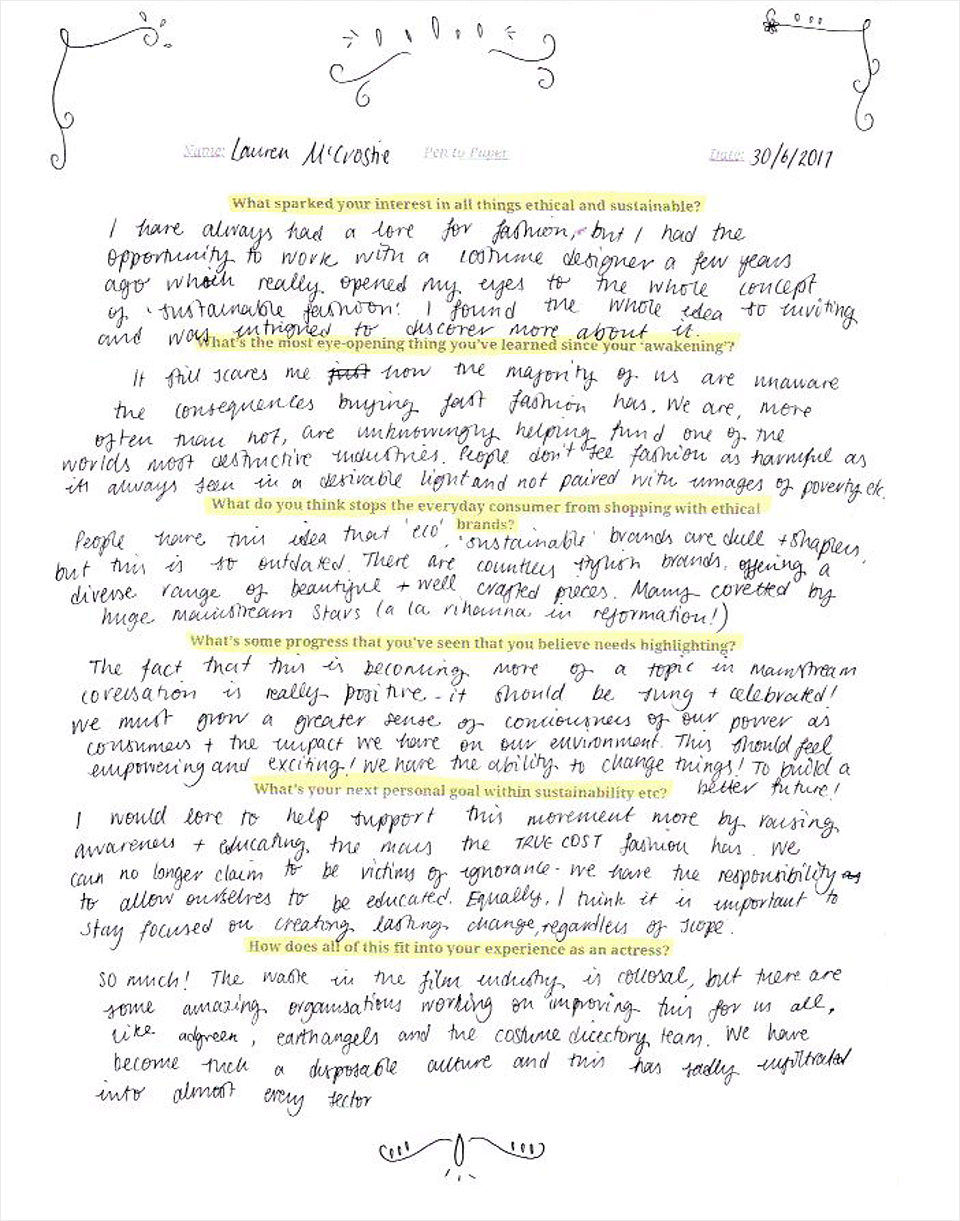 Name: Lauren McCrostie Pen to Paper Date: 30/6/2017
What sparked your interest in all things ethical and sustainable?
I have always had a love for fashion, but I had the
opportunity to work with a costume designer a few years
ago which really opened my eyes to the whole concept
of 'sustainable fashion'. I found the whole idea so inviting
and was intrigued to discover more about it.
What's the most eye-opening thing you've learned since your 'awakening'?
It still scares me just how the majority of us are unaware
the consequences buying fast fashion has. We are, more
often than not, are unknowingly helping fund one of the
worlds most destructive industries. People don't see fashion as harmful as
its always seen in a desirable light and not paired with images of poverty etc.
What do you think stops the everyday consumer from shopping with ethical
brands?
People have this idea that 'eco', 'sustainable' brands are dull + shapless,
but this is so outdated. There are countless stylish brands, offering a
diverse range of beautiful + well crafted pieces. Many covetted by
huge mainstream stars (a la rihanna in reformation!)
What's some progress that you've seen that you believe needs highlighting?
The fact that this is becoming more of a topic in mainstream
coversation is really positive - it should be sung + celebrated!
We must grow a greater sense of conciousness of our power as
consumers + the impact we have on our environment. This should feel
empowering and exciting! We have the ability to change things! To build a
better future!
What's your next personal goal within sustainability etc?
I would love to help support this movement more by raising
awareness + educating the mass the TRUE COST fashion has. We
can no longer claim to be victims of ignorance - we have the responsibility as
to allow ourselves to be educated. Equally, I think it is important to
stay focused on creating lasting change, regardless of scope.
How does all of this fit into your experience as an actress?
SO much! The waste in the film industry is collosal, but there are
some amazing organisations working on improving this for us all,
like adgreen, earthangels and the costume directory team. We have
become such a disposable culture and this has sadly infiltrated
into almost every sector